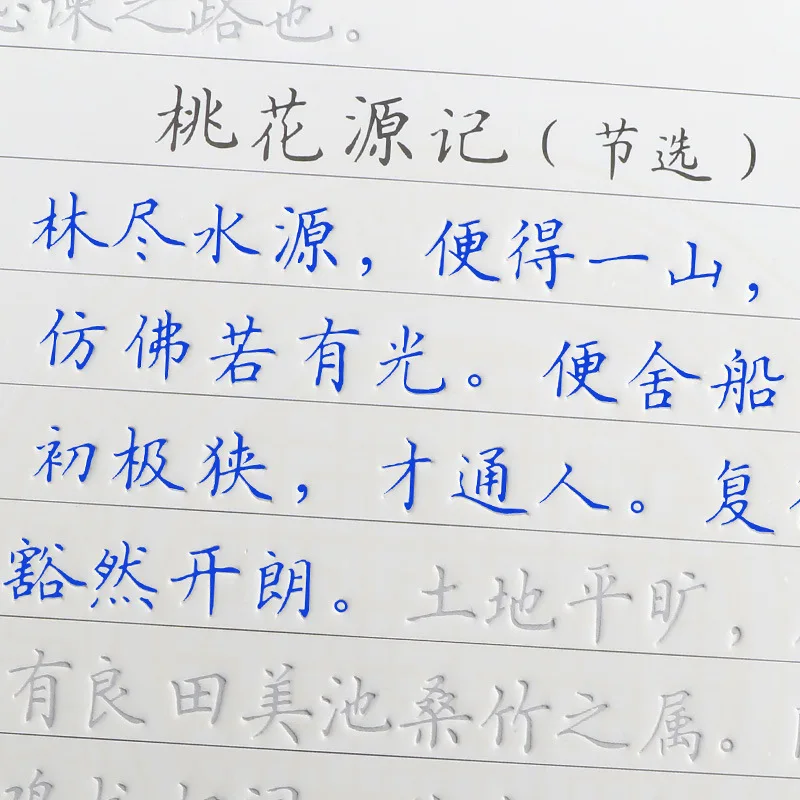 之路也。
桃花源记（节选）
林尽水源，便得一山，
仿佛若有光。便舍船
初极狭，才通人。复
豁然开朗。土地平旷，
有良田美池桑竹之属。